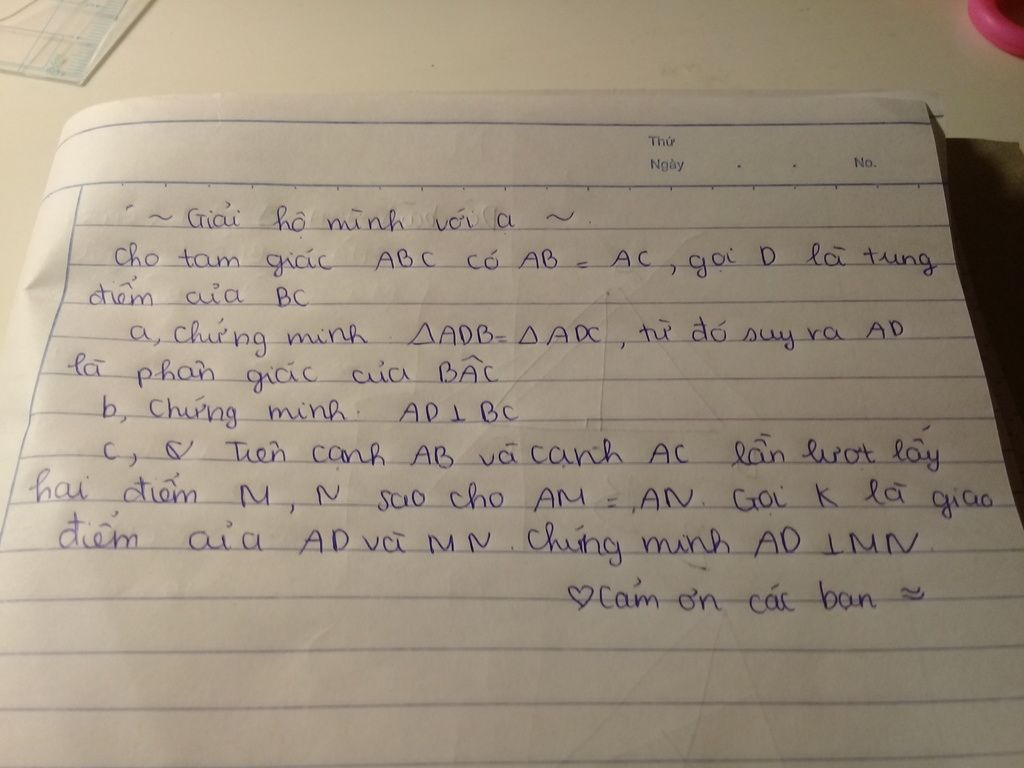 Thứ
Ngày . . No.
~ Giải hộ mình với ạ ~
Cho tam giác ABC có AB = AC, gọi D là trung
điểm của BC
a, Chứng minh ΔADB = ΔADC, từ đó suy ra AD
là phân giác của BÂC
b, Chứng minh. AD ⊥ BC
c, Trên cạnh AB và cạnh AC lần lượt lấy
hai điểm M, N sao cho AM = AN. Gọi K là giao
điểm của AD và MN. Chứng minh AD ⊥ MN.
♡ Cảm ơn các bạn ≈